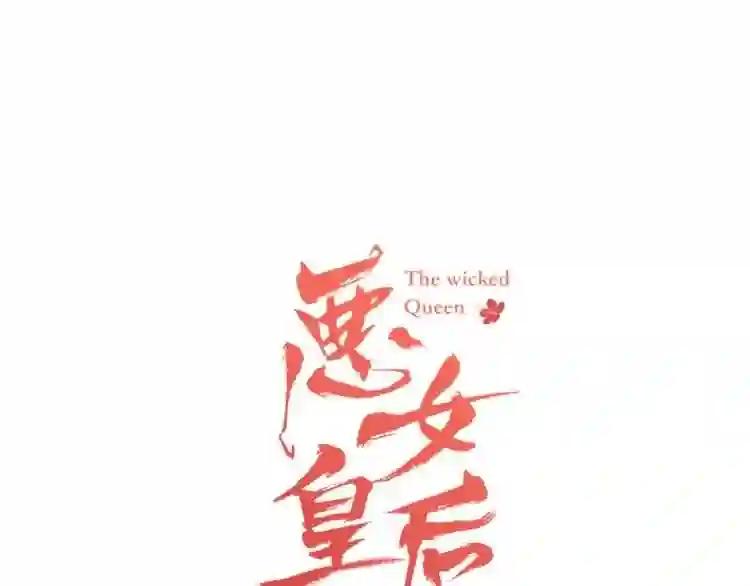 惡女
皇后
The wicked
Queen